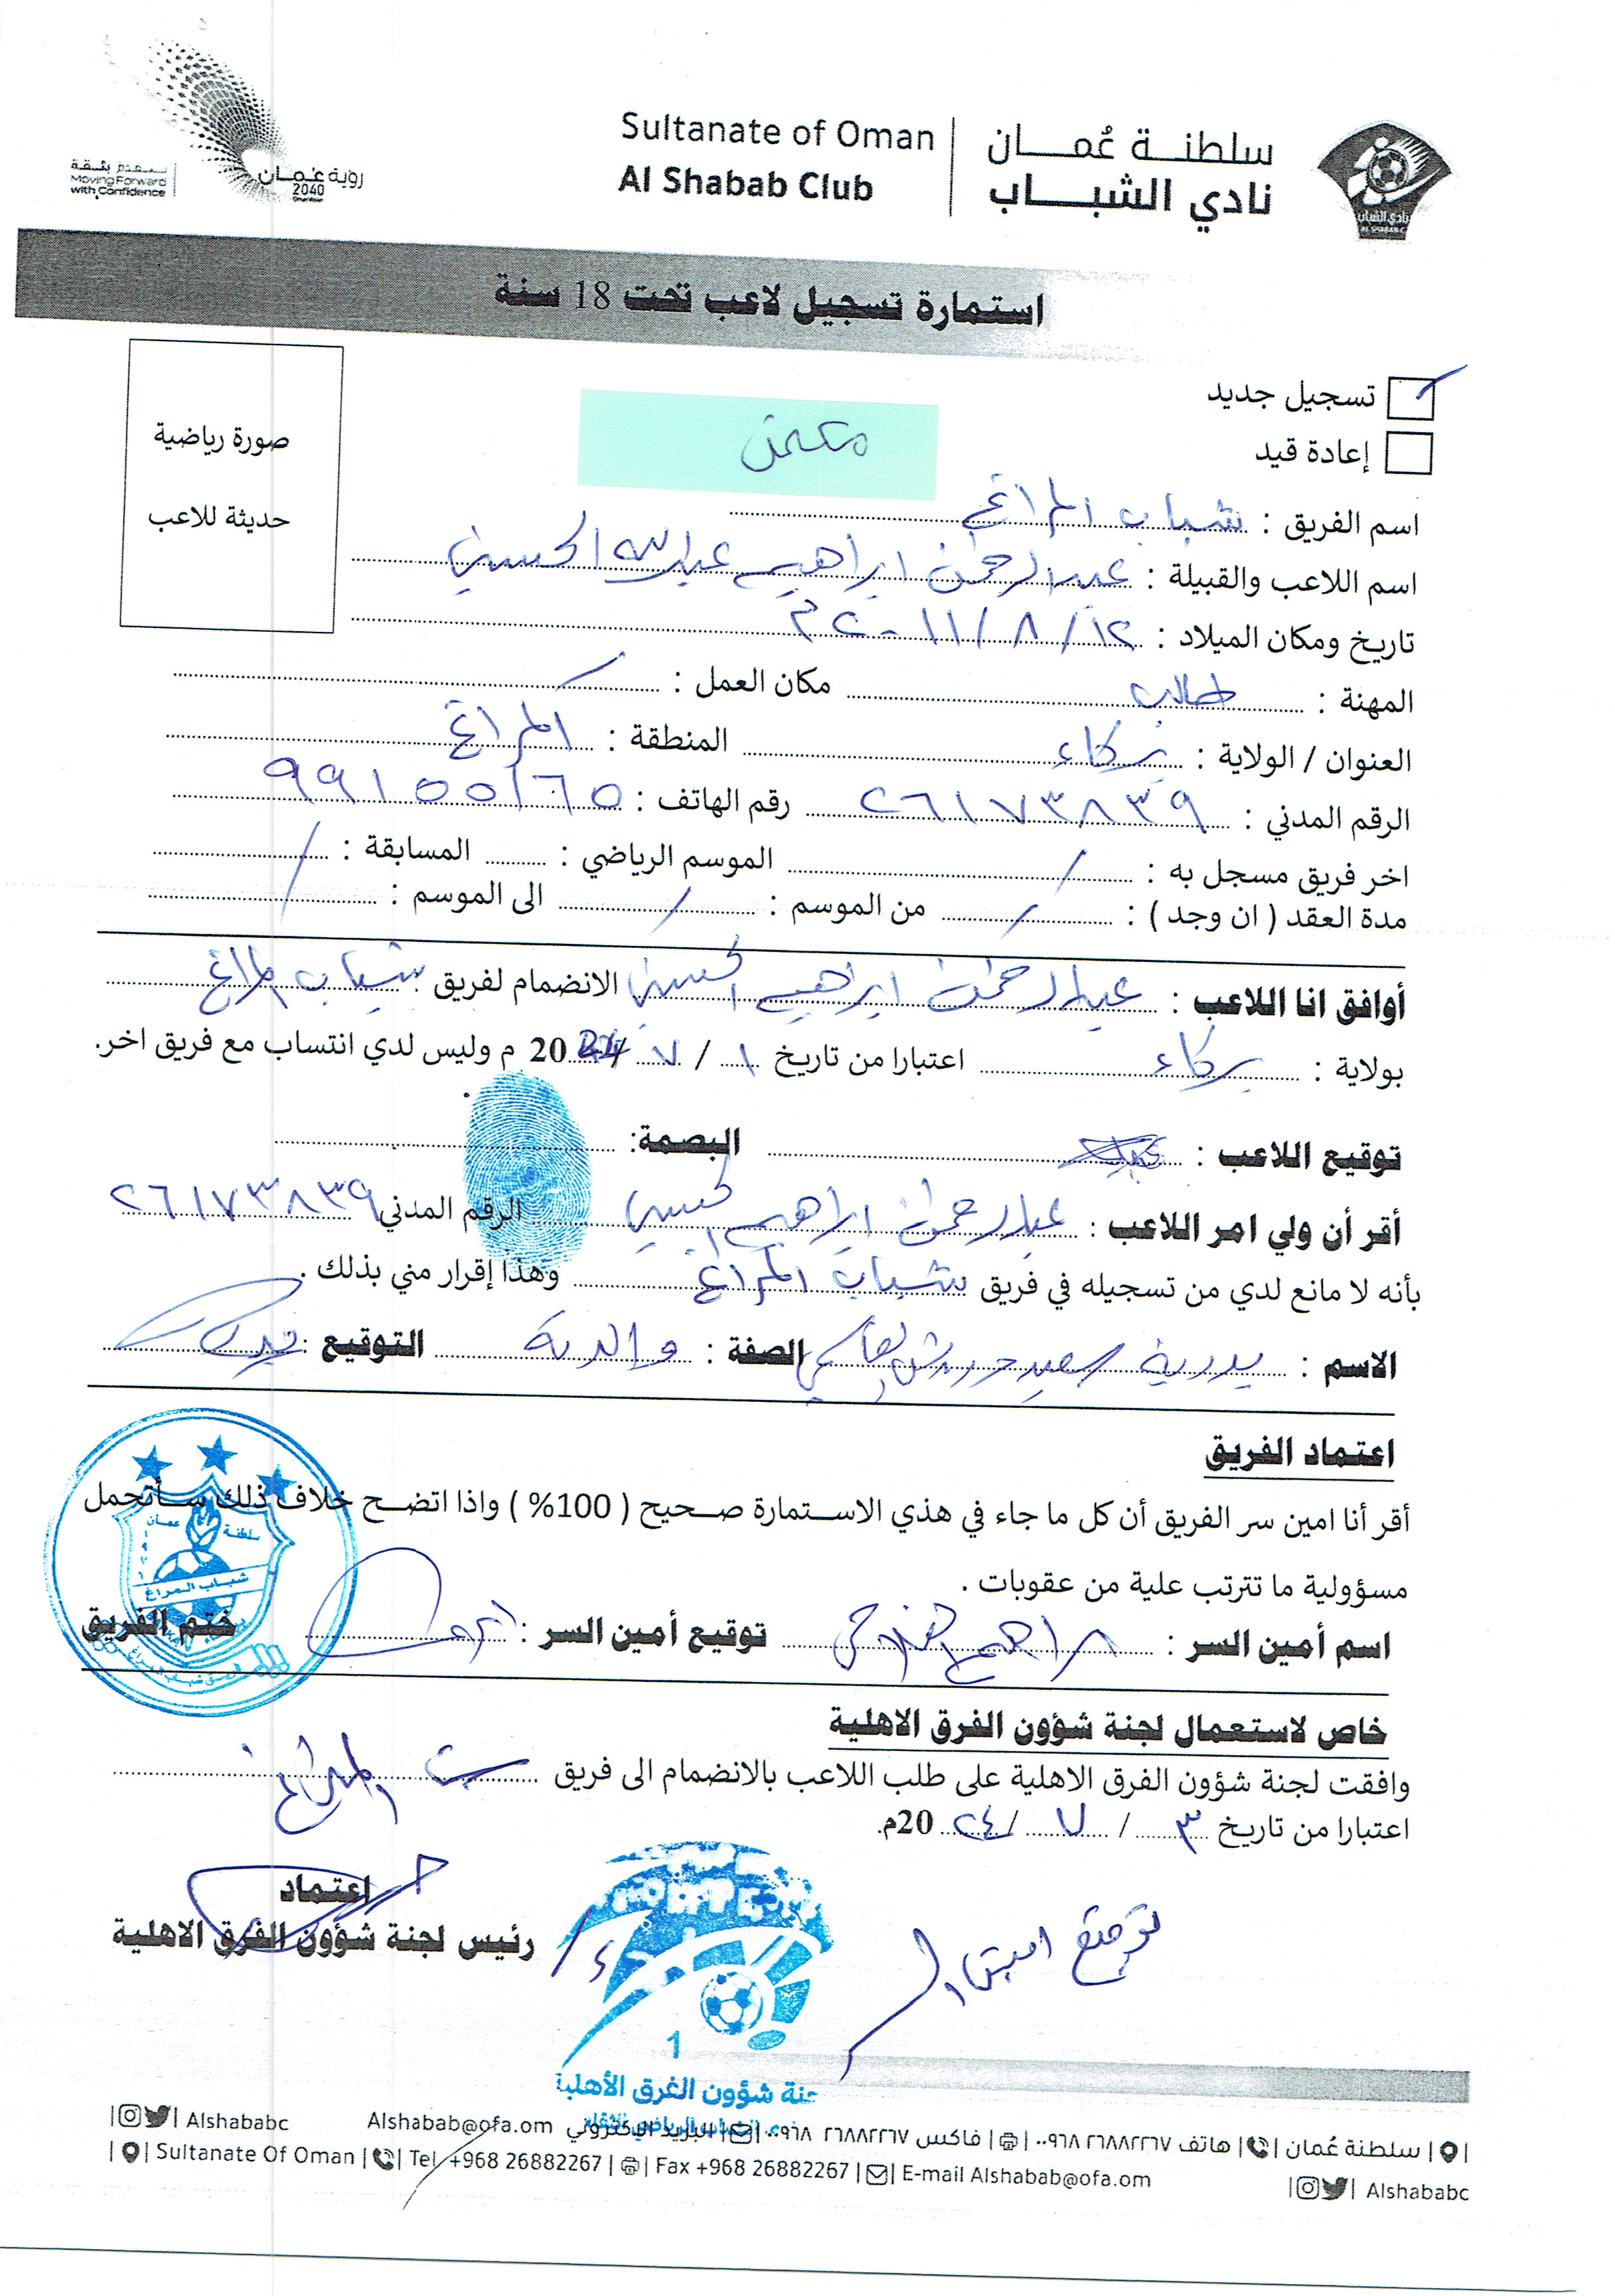 سلطنة عُمان
نادي الشباب
Sultanate of Oman
Al Shabab Club
رؤية عُمان
2040
نتقدم بثقة
Moving Forward
with Confidence
استمارة تسجيل لاعب تحت 18 سنة
تسجيل جديد
إعادة قيد
صورة رياضية
حديثة للاعب
اسم الفريق : شباب المراغ
اسم اللاعب والقبيلة : عبدالرحمن ابراهيم عبدالله الحسني
تاريخ ومكان الميلاد : ١٢ / ٨ / ٢٠١١م
المهنة : طالب مكان العمل : /
العنوان / الولاية : بركاء المنطقة : المراغ
الرقم المدني : ٢٦١٧٣٨٣٩ رقم الهاتف : ٩٩١٥٥١٦٥
اخر فريق مسجل به : / الموسم الرياضي : المسابقة : /
مدة العقد ( ان وجد ) : / من الموسم : / الى الموسم : /
أوافق انا اللاعب : عبدالرحمن ابراهيم الحسني الانضمام لفريق : شباب المراغ
بولاية : بركاء اعتبارا من تاريخ ١ / ٧ / 2024 م وليس لدي انتساب مع فريق اخر.
توقيع اللاعب : البصمة:
أقر أن ولي امر اللاعب : عبدالرحمن ابراهيم الحسني الرقم المدني ٢٦١٧٣٨٣٩
بأنه لا مانع لدي من تسجيله في فريق شباب المراغ وهذا إقرار مني بذلك .
الاسم : بدرية سعيد الصفة : والدته التوقيع :
اعتماد الفريق
أقر أنا امين سر الفريق أن كل ما جاء في هذي الاستمارة صحيح ( 100% ) واذا اتضح خلاف ذلك سأتحمل
مسؤولية ما تترتب علية من عقوبات .
اسم أمين السر : توقيع أمين السر : ختم الفريق
سلطنة عمان
شباب المراغ
خاص لاستعمال لجنة شؤون الفرق الاهلية
وافقت لجنة شؤون الفرق الاهلية على طلب اللاعب بالانضمام الى فريق المراغ
اعتبارا من تاريخ ٣ / ٧ / ٢٤ 20م.
اعتماد
رئيس لجنة شؤون الفرق الاهلية
توقيع امين السر
1
جنة شؤون الفرق الأهلية
| سلطنة عُمان | هاتف ٢٦٨٨٢٢٦٧ ٠٠٩٦٨ | فاكس ٢٦٨٨٢٢٦٧ ٠٠٩٦٨ | البريد الالكتروني Alshabab@ofa.om Alshababc
| Sultanate Of Oman | Tel +968 26882267 | Fax +968 26882267 | E-mail Alshabab@ofa.om | Alshababc